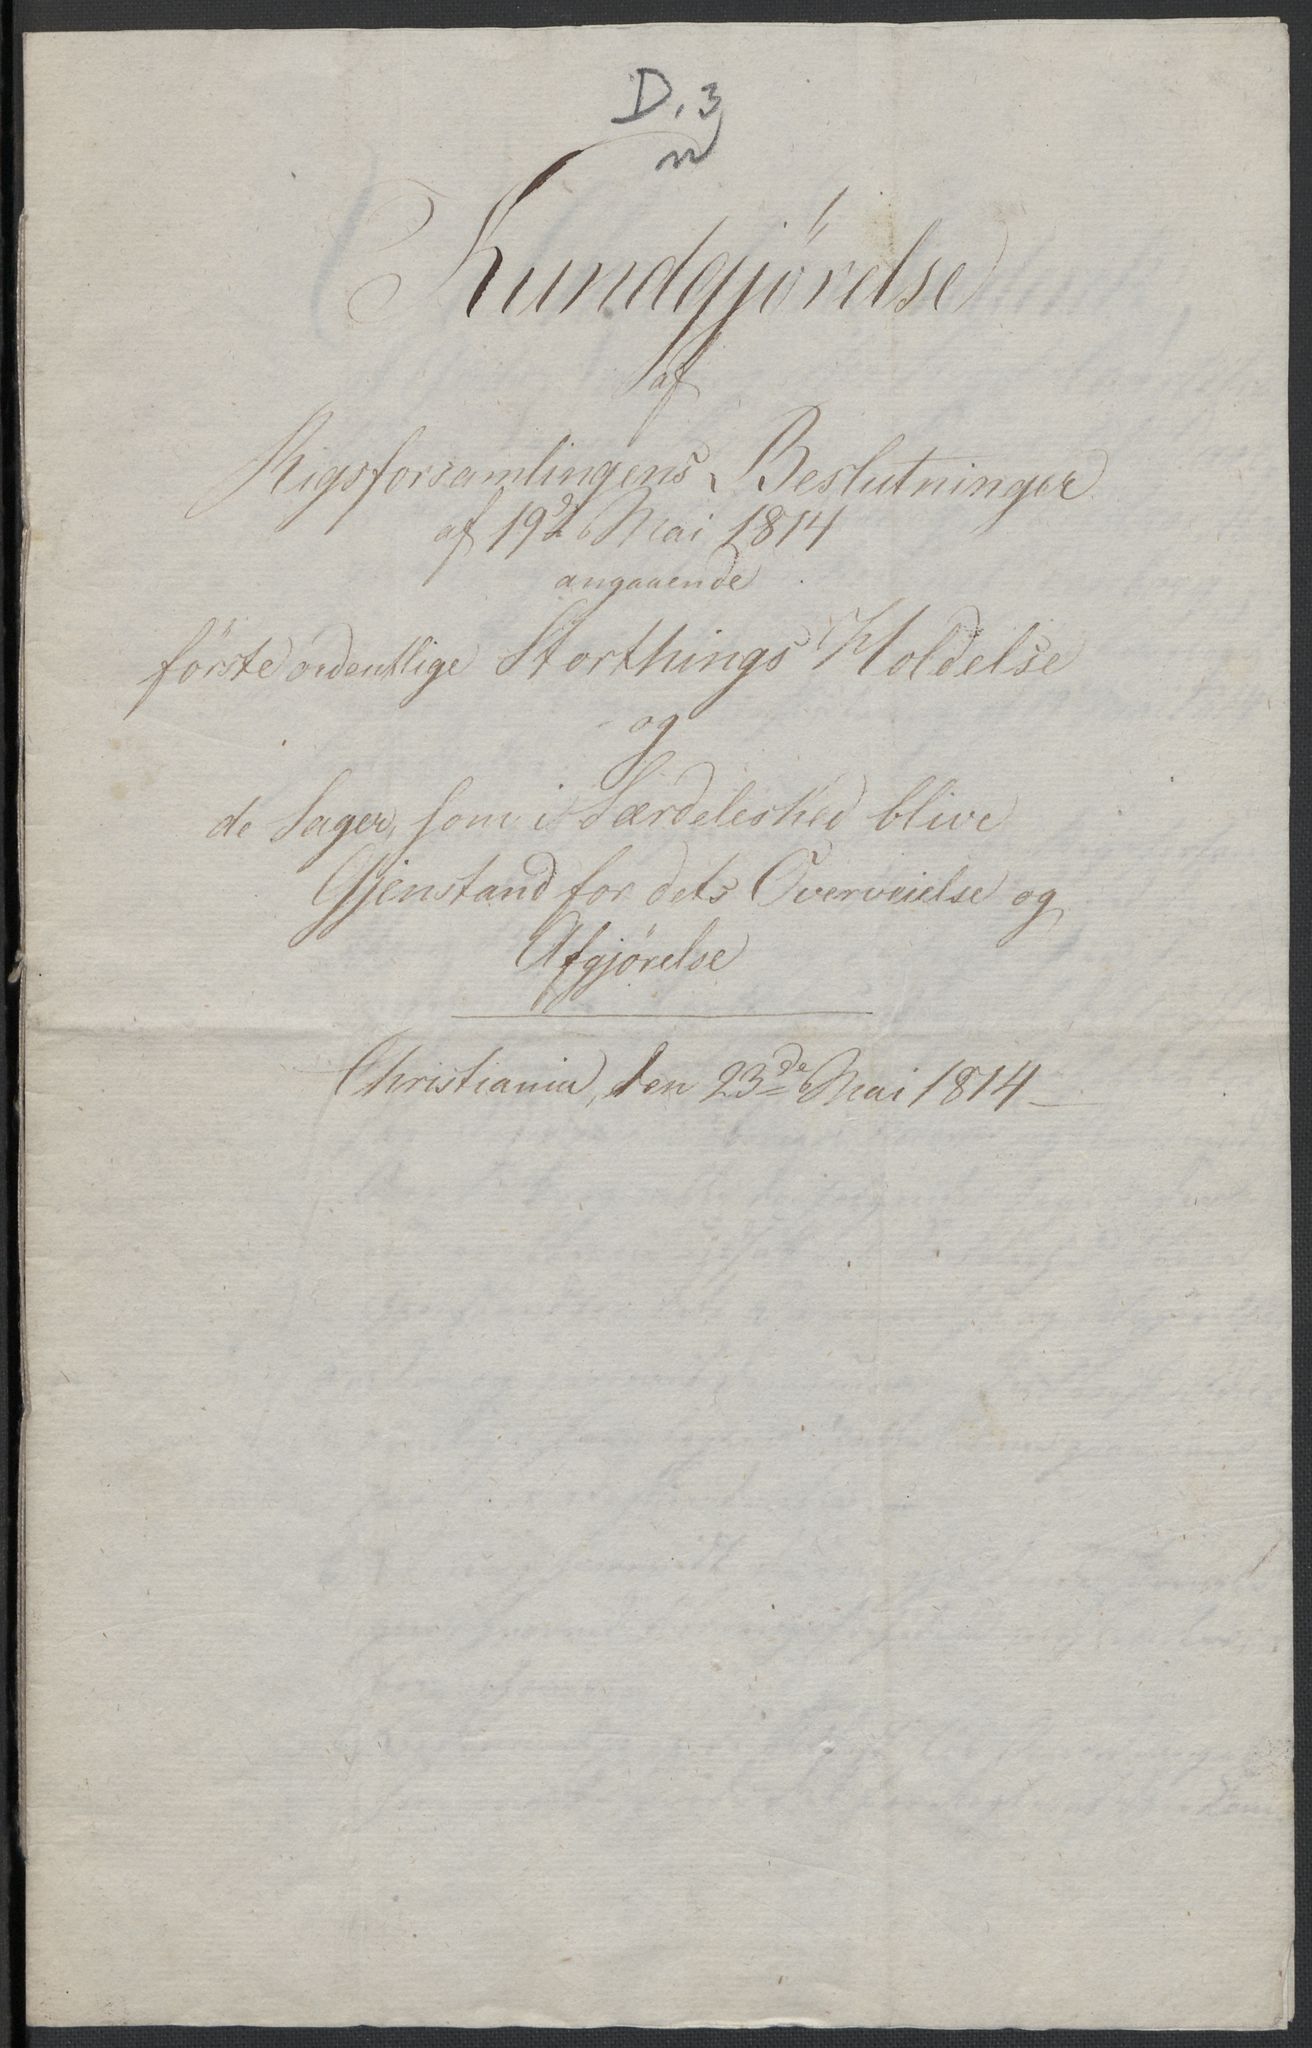 D. 3
Kundgjörelse
af
Rigsforsamlingens Beslutninger
af 19d Mai 1814
angaaende
förste ordentlige Storthings Holdelse
og
de Sager, som i Særdeleshed blive
Gjenstand for dets Overveielse og
Afgjörelse
Christiania, den 23de Mai 1814